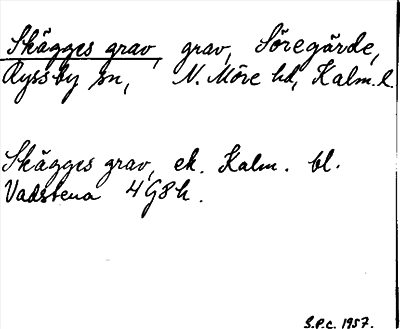 Skägges grav, grav, Söregärde,
Ryssby sn, N. Möre hd, Kalm. l.
Skägges grav, ek. Kalm. bl.
Vadstena 4 G8h.
S.P.C. 1957.